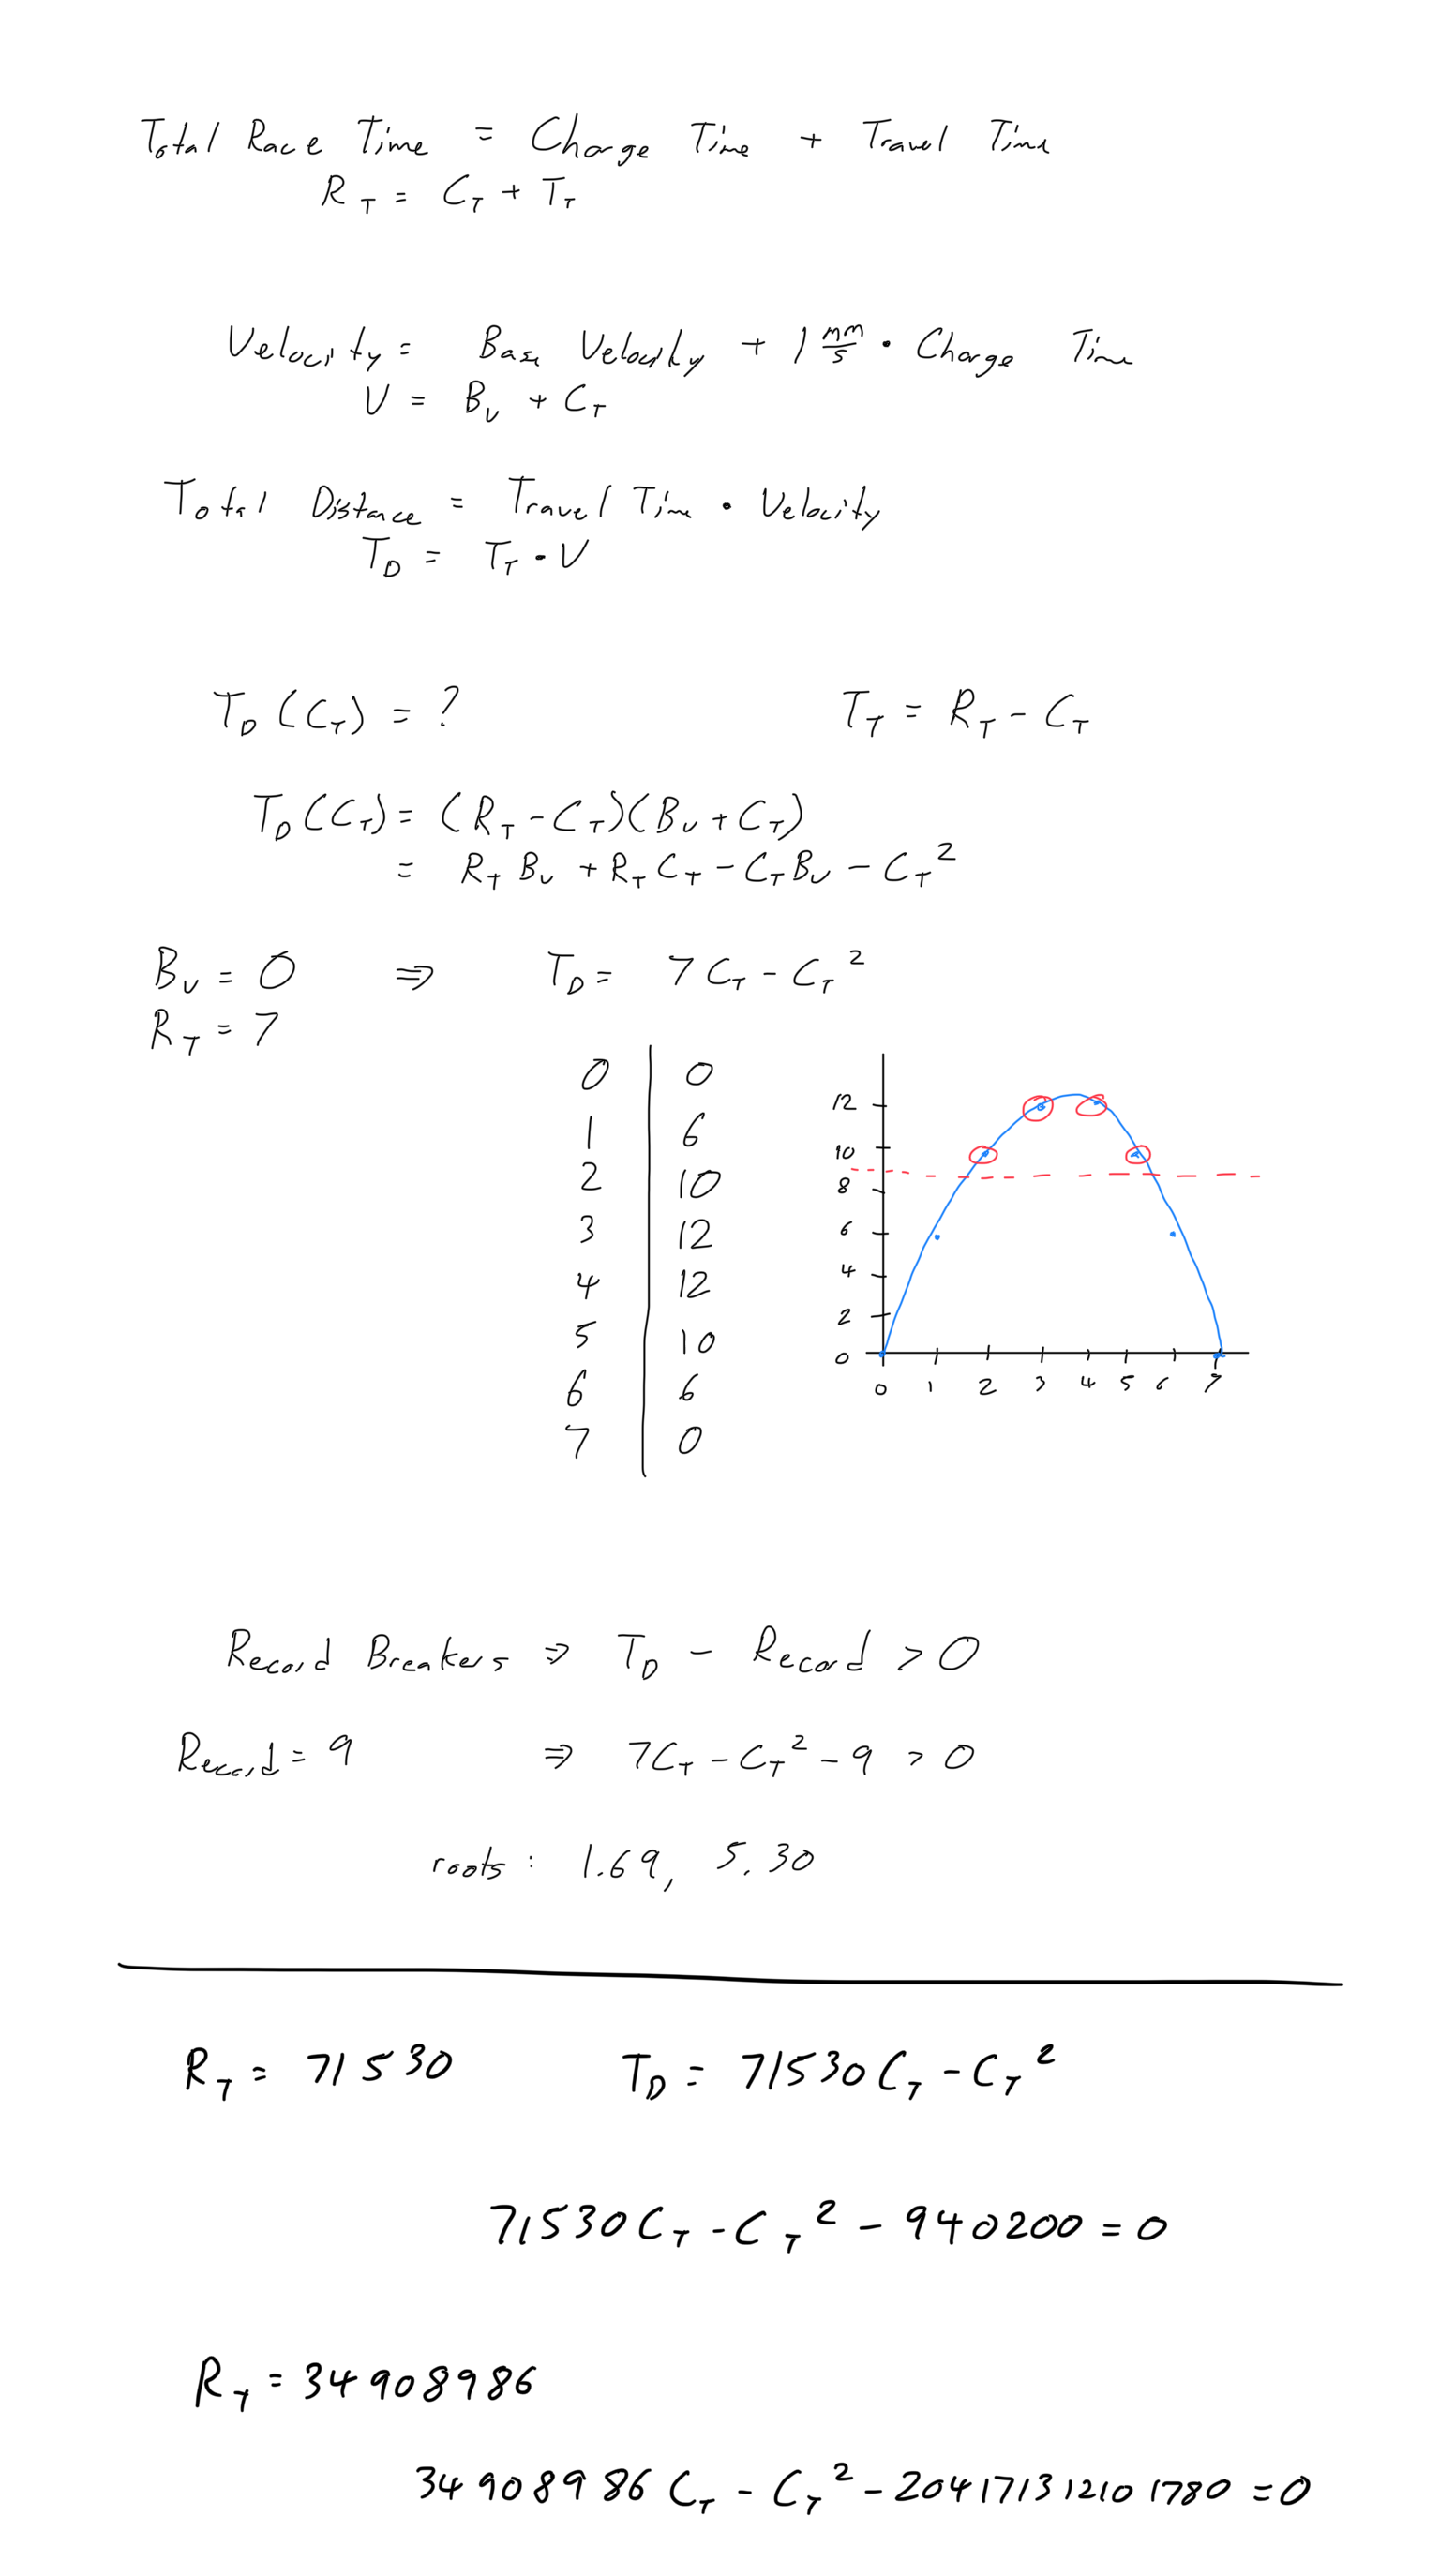 Total Race Time = Charge Time + Travel Time
R_T = C_T + T_T
Velocity = Base Velocity + 1 mm/s · Charge Time
V = B_V + C_T
Total Distance = Travel Time · Velocity
T_D = T_T · V
T_D (C_T) = ? T_T = R_T - C_T
T_D (C_T) = (R_T - C_T)(B_V + C_T)
= R_T B_V + R_T C_T - C_T B_V - C_T²
B_V = 0 ⇒ T_D = 7 C_T - C_T²
R_T = 7
0 | 0
1 | 6
2 | 10
3 | 12
4 | 12
5 | 10
6 | 6
7 | 0
12
10
8
6
4
2
0
0 1 2 3 4 5 6 7
Record Breakers ⇒ T_D - Record > 0
Record = 9 ⇒ 7C_T - C_T² - 9 > 0
roots : 1.69, 5.30
R_T = 71530 T_D = 71530 C_T - C_T²
71530 C_T - C_T² - 940200 = 0
R_T = 34908986
34908986 C_T - C_T² - 204171312101780 = 0